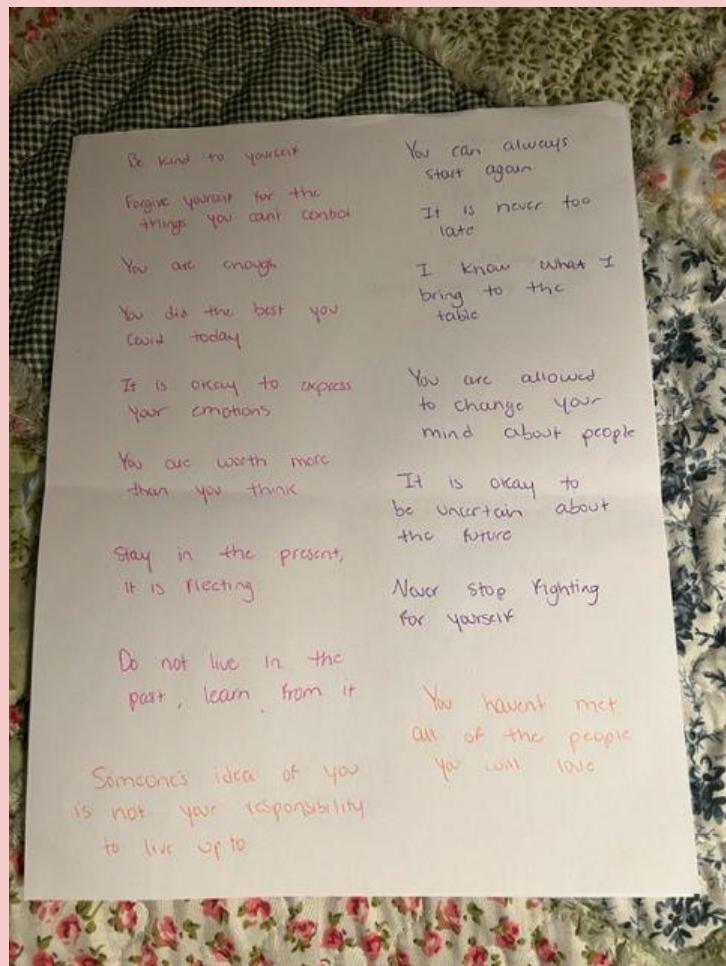 Be kind to yourself
Forgive yourself for the
things you cant control
You are enough
You did the best you
could today
It is okay to express
your emotions
You are worth more
than you think
Stay in the present,
it is fleeting
Do not live in the
past, learn from it
Someone's idea of you
is not your responsibility
to live up to
You can always
start again
It is never too
late
I know what I
bring to the
table
You are allowed
to change your
mind about people
It is okay to
be uncertain about
the future
Never stop fighting
for yourself
You havent met
all of the people
you will love